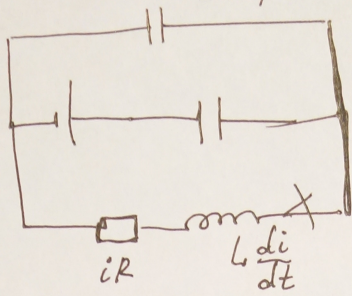 iR
L di
dt